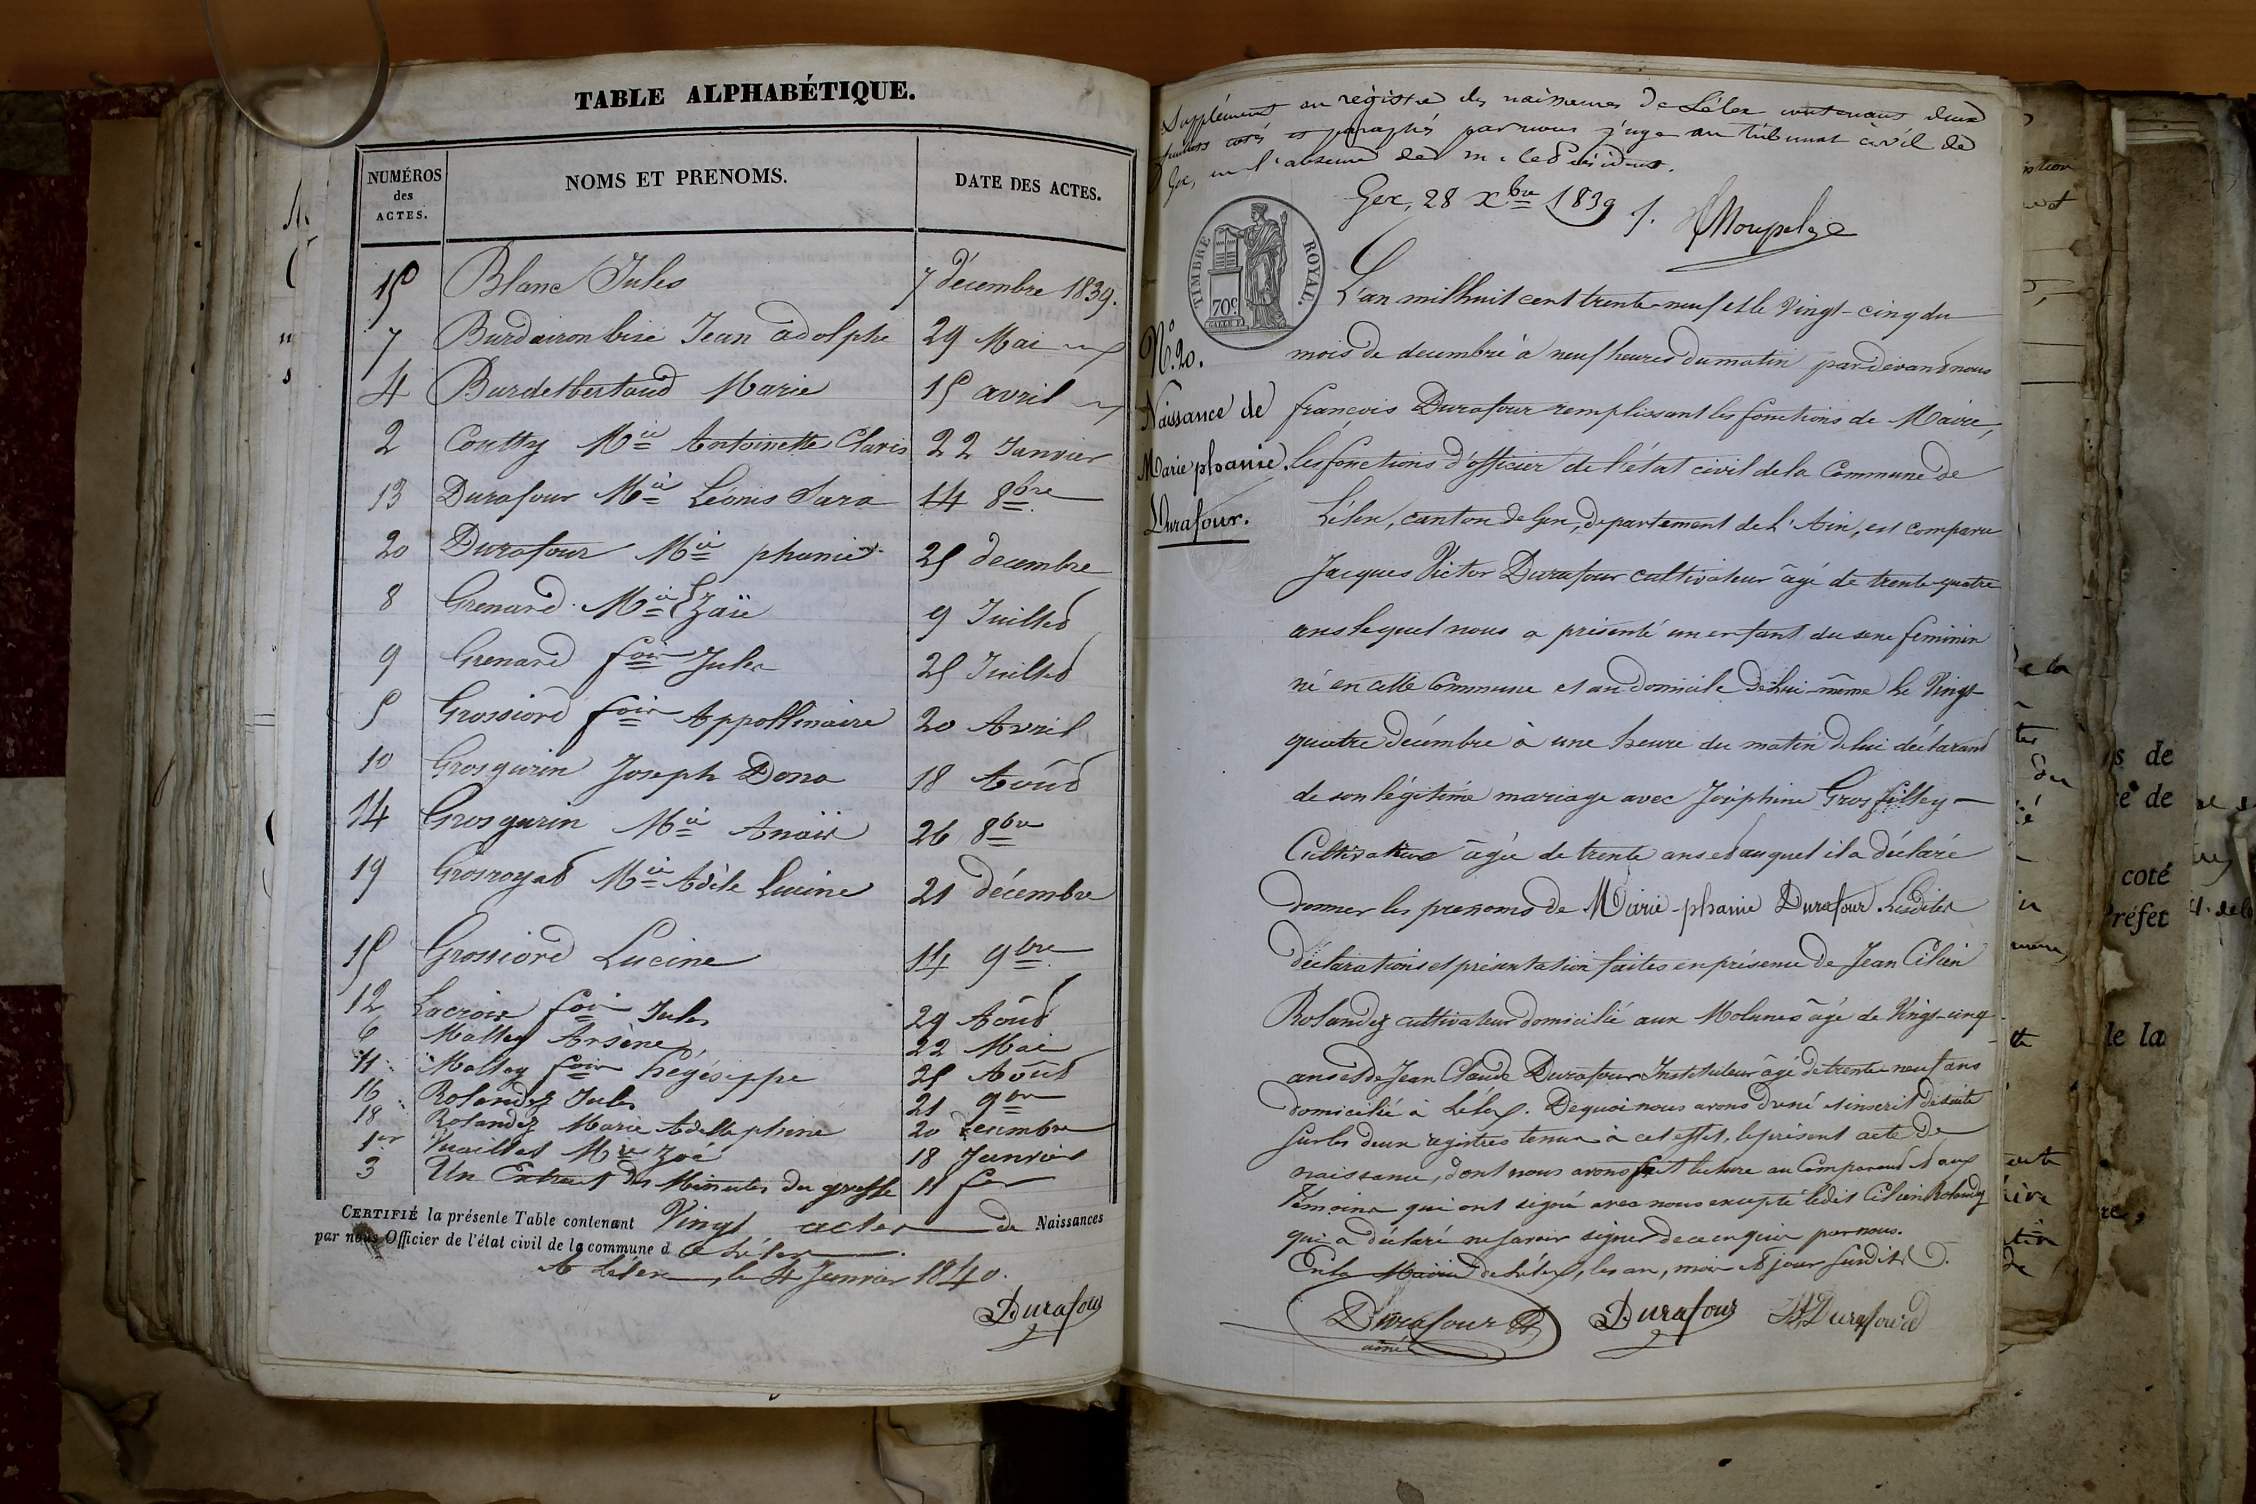 TABLE ALPHABÉTIQUE.
NUMÉROS des ACTES. NOMS ET PRENOMS. DATE DES ACTES.
15 Blanc Jules 7 décembre 1839.
7 Burdairon bisé Jean adolphe 29 Mai
4 Burdet Marie 15 avril
2 Coutty Mie Antoinette Claris 22 Janvier
13 Durafour Mie Léonis Sara 14 8bre
20 Durafour Mie phanie 25 decembre
8 Grenard Mie Zaïe 9 Juillet
9 Grenard fois Jules 25 Juillet
5 Grossiord fois Appollinaire 20 Avril
10 Grosgurin Joseph Dona 18 Août
14 Grosgurin Mie Anaïs 26 8bre
19 Grosroyat Mie Adèle Lucine 21 décembre
15 Grossiord Lucine 14 9bre
12 Lacroix fois Jules 29 Août
6 Mattey Arsène 22 Mai
11 Mattey fois hégésippe 25 Août
16 Rolandez Jules 21 9bre
18 Rolandez Marie Adelle phine 20 decembre
1er Vuaillat Mie Zoé 18 Janvier
3 Un Extrait des Minutes du greffe 11 fer
CERTIFIÉ la présente Table contenant Vingt actes de Naissances
par nous Officier de l'état civil de la commune d e Lélex
A Lélex, le 4 Janvier 1840.
Durafour
Supplément au registre des naissances de Lélex contenant deux
feuillets cotés et paraphés par nous juge au tribunal civil de
Gex, en l'absence de m. le Président.
Gex, 28 Xbre 1839
TIMBRE ROYAL.
70c.
L'an mil huit cent trente-neuf et le Vingt-cinq du
No. 20.
mois de decembre à neuf heures du matin pardevant nous
Naissance de
françois Durafour remplissant les fonctions de Maire,
Marie phanie
les fonctions d'officier de l'état civil de la Commune de
Durafour.
Lélex, canton de Gex, departement de L'Ain, est comparu
Jacques Victor Durafour cultivateur âgé de trente-quatre
ans lequel nous a présenté un enfant du sexe feminin
né en cette Commune et au domicile de lui-même le Vingt
quatre décembre à une heure du matin de lui déclarant
de son légitime mariage avec Joséphine Grosfilley
Cultivatrice âgée de trente ans et auquel il a déclaré
donner les prenoms de Marie-phanie Durafour. Lesdites
déclarations et présentation faites en présence de Jean Cilien
Rolandez cultivateur domicilié aux Molunes âgé de Vingt-cinq
ans et de Jean Claude Durafour Instituteur âgé de trente neuf ans
domicilié à Lélex. De quoi nous avons dréné et inscrit de suite
sur les deux registres tenus à cet effet, le présent acte de
naissance, dont nous avons fait lecture au Comparant et aux
témoins qui ont signé avec nous excepté ledit Cilien Rolandez
qui a déclaré ne savoir signer de ce enquis par nous.
En la Mairie de Lélex, les an, mois et jour susdits.
Durafour
aîné
Durafour
Durafour